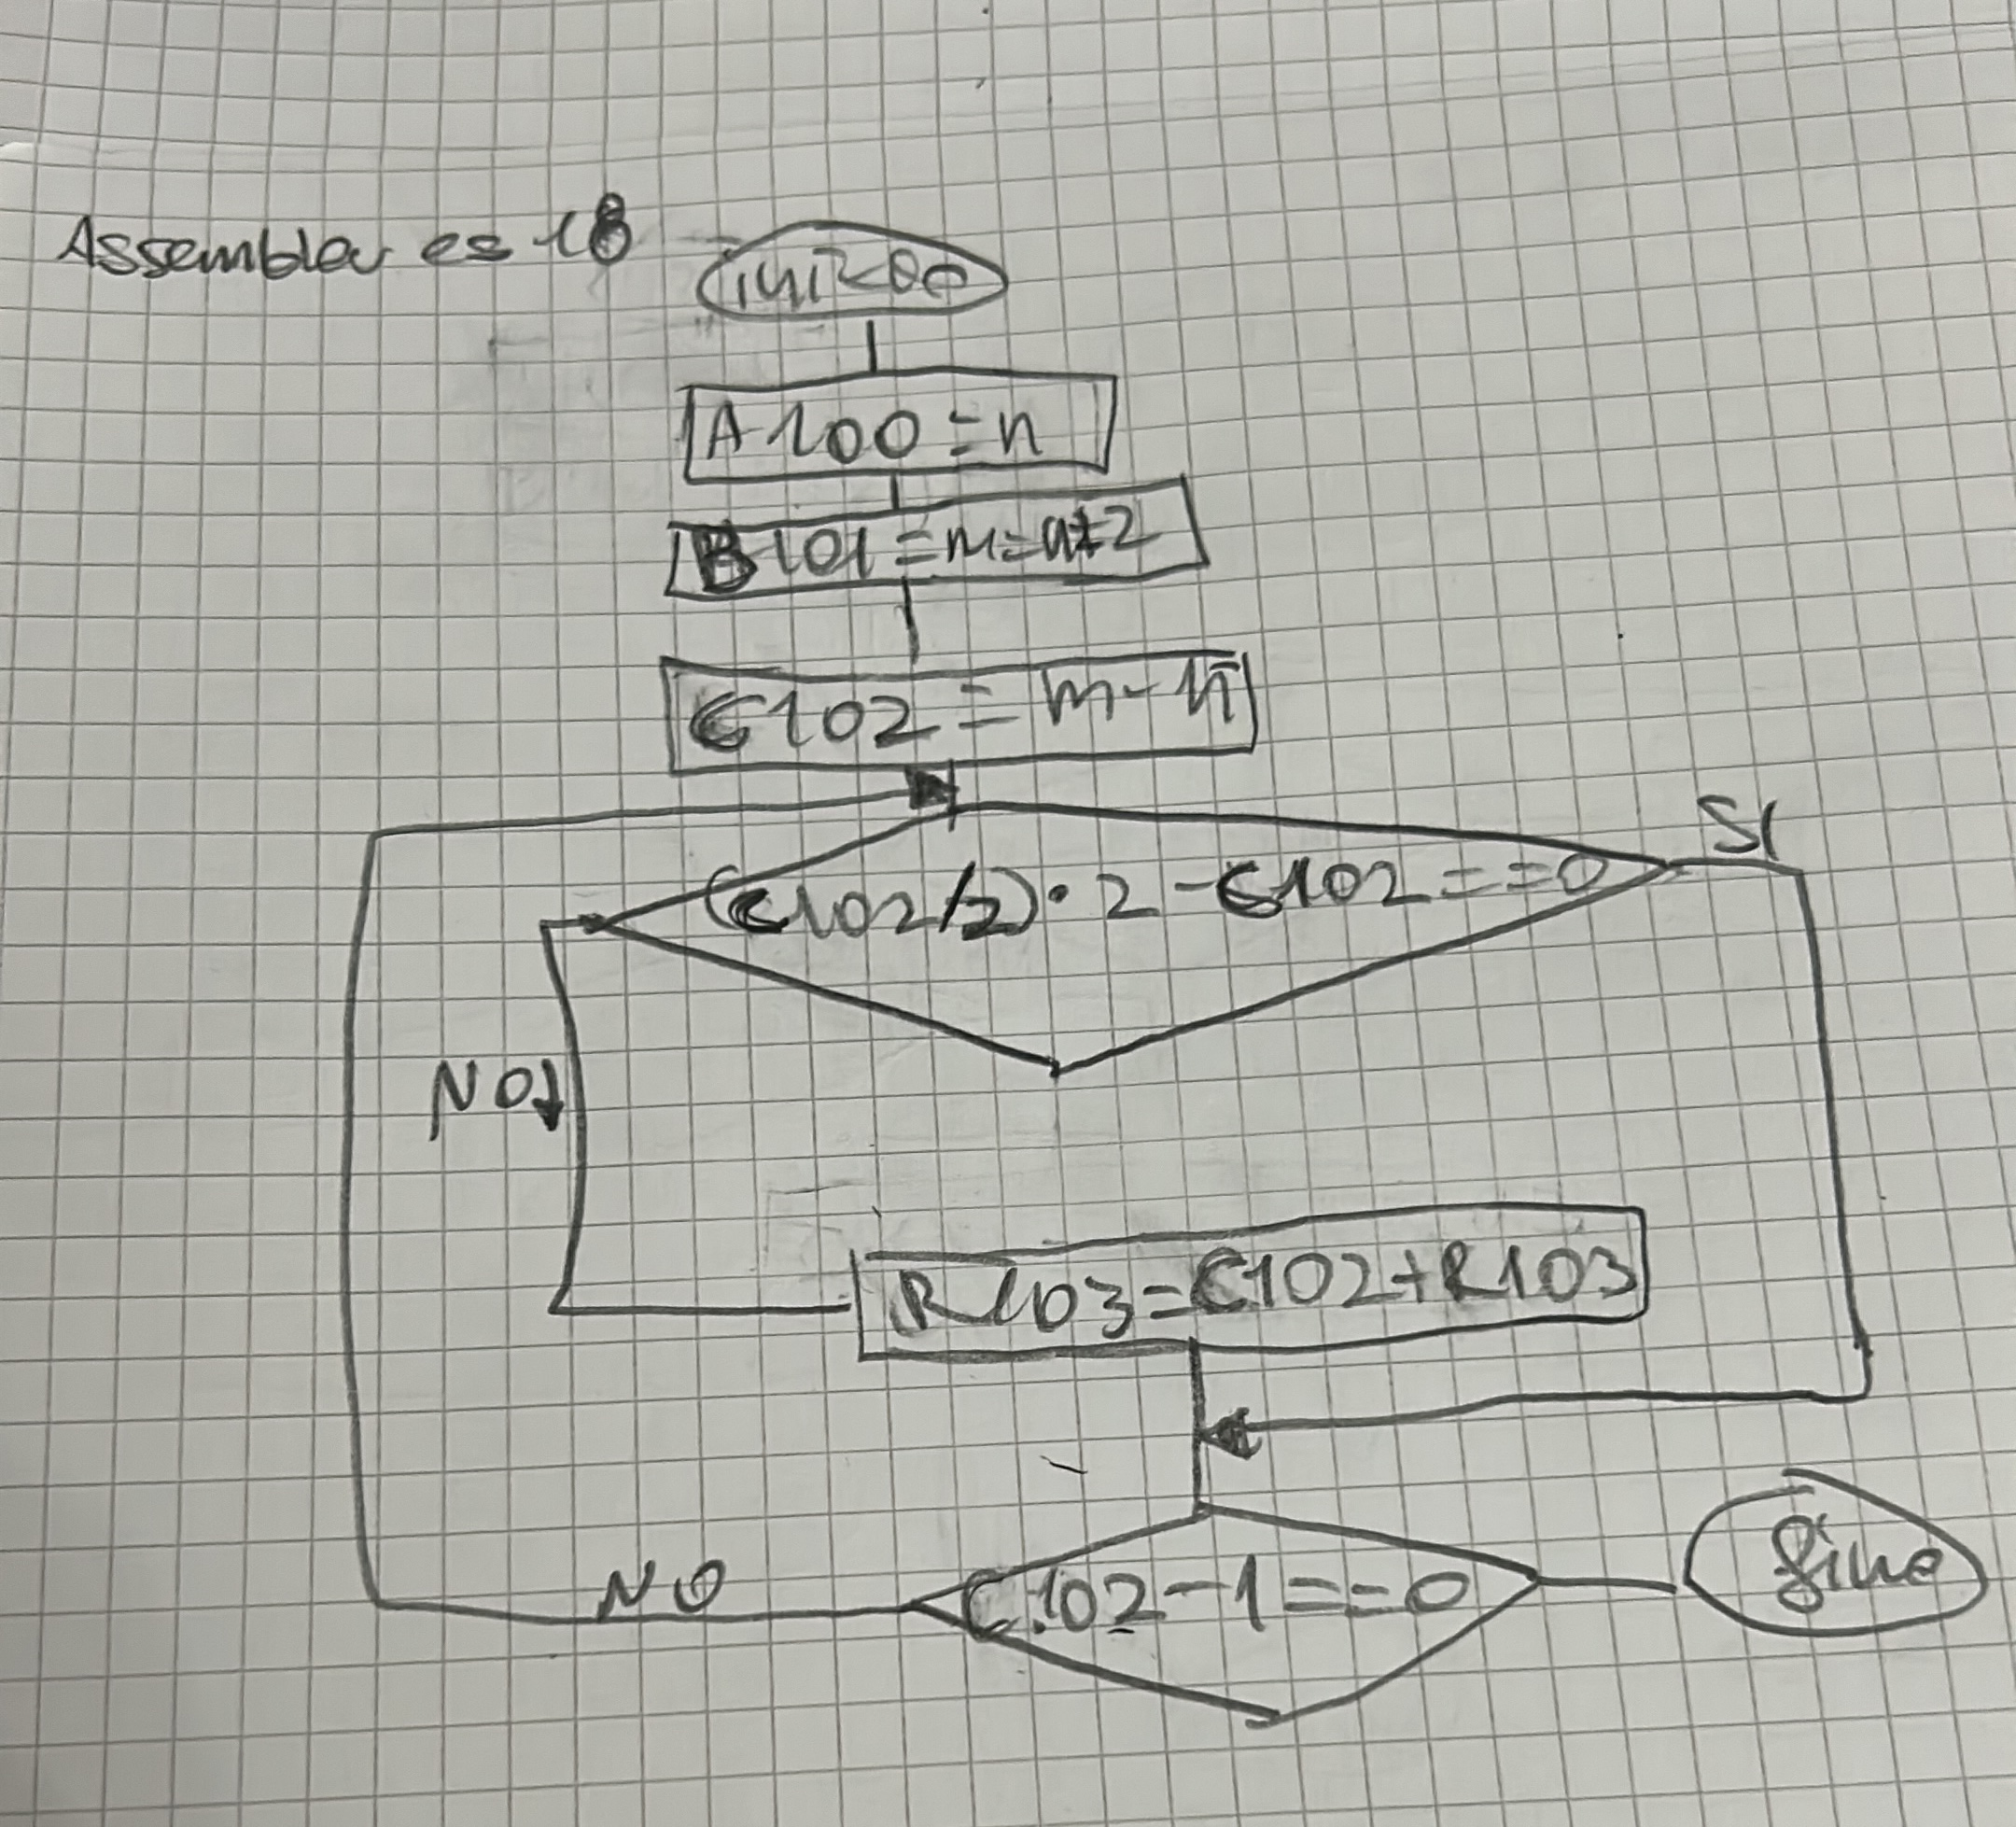 Assembler es 18
inizio
A100=n
B101=m=n+2
C102=m-n
(C102/2)·2-C102==0
SI
NO
R103=C102+R103
C102-1==0
NO
fine